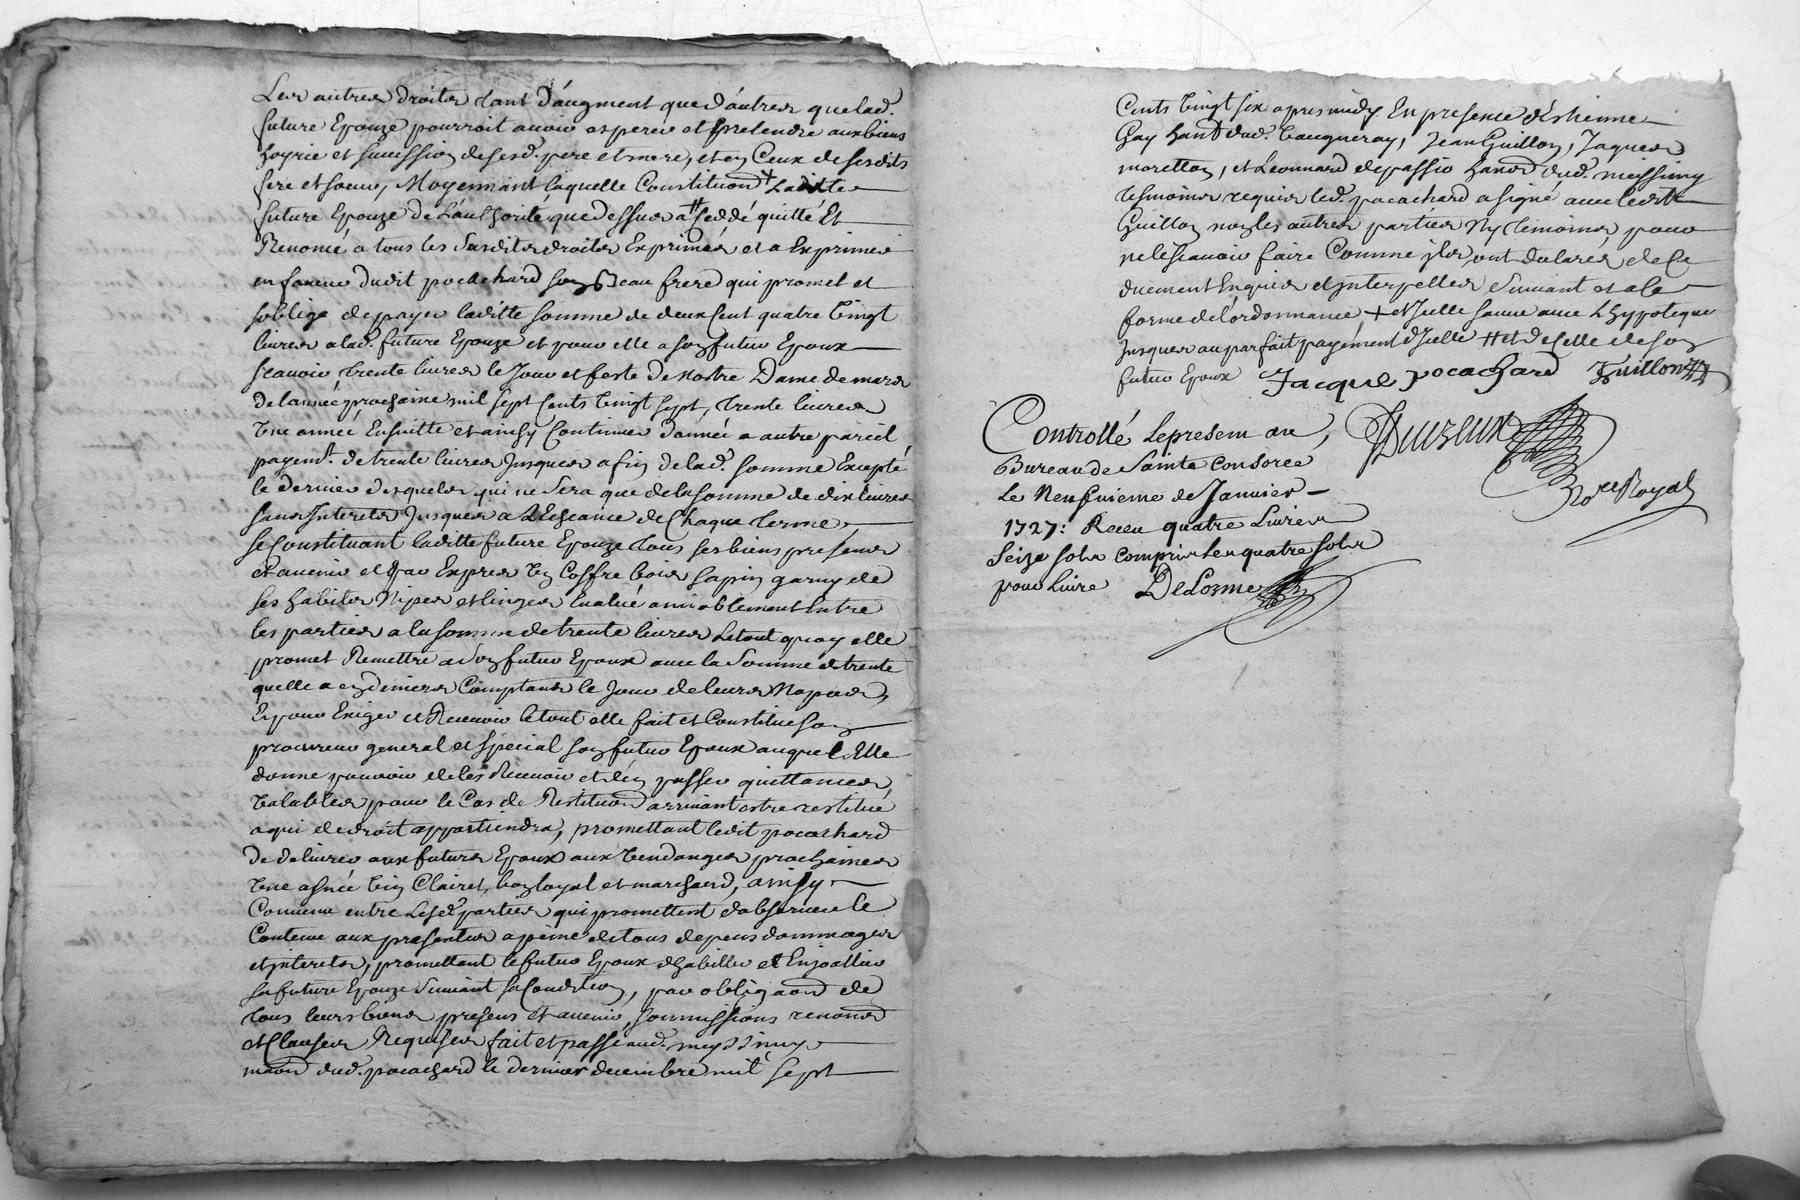 Les autres droits tant d'augment que d'autres que lad.
future Epouze pourroit avoir esperer et pretendre aux biens
hoyrie et succession de sesd. pere et mere, et en Ceux de sesdits
frere et soeur, Moyennant laquelle Constitution + Laditte
future Epouze de L'authorité que dessus a # Ceddé quitté Et
Renoncé a tous les susdits droits Exprimés et a Exprimer
en faveur dudit pocachard son Beau frere qui promet et
soblige de payer laditte somme de deux Cent quatre vingt
livres a lad. future Epouze et pour elle a son futur Epoux
scavoir trente livres le Jour et feste de Nostre Dame de mars
de lannée prochaine mil sept Cents vingt sept, trente livres
Une année Ensuitte et ainsy Continuer dannée a autre pareil
payemt. de trente livres Jusques a fin de lad. somme Excepté
le dernier desquels qui ne sera que de la somme de dix livres
sans Interets Jusques a L'Escheance de Chaque terme,
se Constituant laditte future Epouze tous ses biens presents
et avenir et par Exprès Un Coffre bois sapin garny de
ses habits Nipes et linges Evalué amiablement Entre
les parties a la somme de trente livres Le tout quoy elle
promet Remettre a son futur Epoux avec la Somme de trente
quelle a en deniers Comptants le Jour de leurs Nopces,
Et pour Exiger et Recevoir le tout elle fait et Constitue son
procureur general et special son futur Epoux auquel Elle
donne pouvoir de les Recevoir et d'en passer quittances
valables pour le Cas de Restitution arrivant estre restitué
a qui de droit appartiendra, promettant ledit pocachard
de delivrer aux futurs Epoux aux vendanges prochaines
Une asnée vin Clairet, bon loyal et marchand, ainsy
Convenu entre Lesd. parties qui promettent dobserver le
Contenu aux presentes a peine de tous depens dommages
et interets, promettant le futur Epoux dhabiller et Enjoaller
sa future Epouze suivant sa Condition, par obligaon de
tous leurs biens presens et avenir, soumissions renons
et Clauses Requises fait et passé aud. meyssimy
maon dud. pocachard le dernier decembre mil sept
Cents vingt six apres midy En presence d'Estienne
Gay hant dud. Vaugneray, Jean Guillon, Jaques
moretton, et Leonnard depassio hant dud. meissimy
tesmoins requis led. pocachard a signé avec ledit
Guillon non les autres parties Ny temoins pour
ne le scavoir faire Comme ils ont declarés de Ce
duement Enquis et Interpellés suivant et a la
forme de lordonnance, + et Icelle sauve avec L'hypoteque
Jusques au parfait payement d'Icelle # et de Celle de son
futur Epoux Jacque pocachard Guillon
Controllé Le present au
Bureau de Sainte Consorce
Le Neufvieme de Janvier
1727: Receu quatre Livres
Seize sols compris Les quatre sols
pour Livre DeLorme
Nore Royal